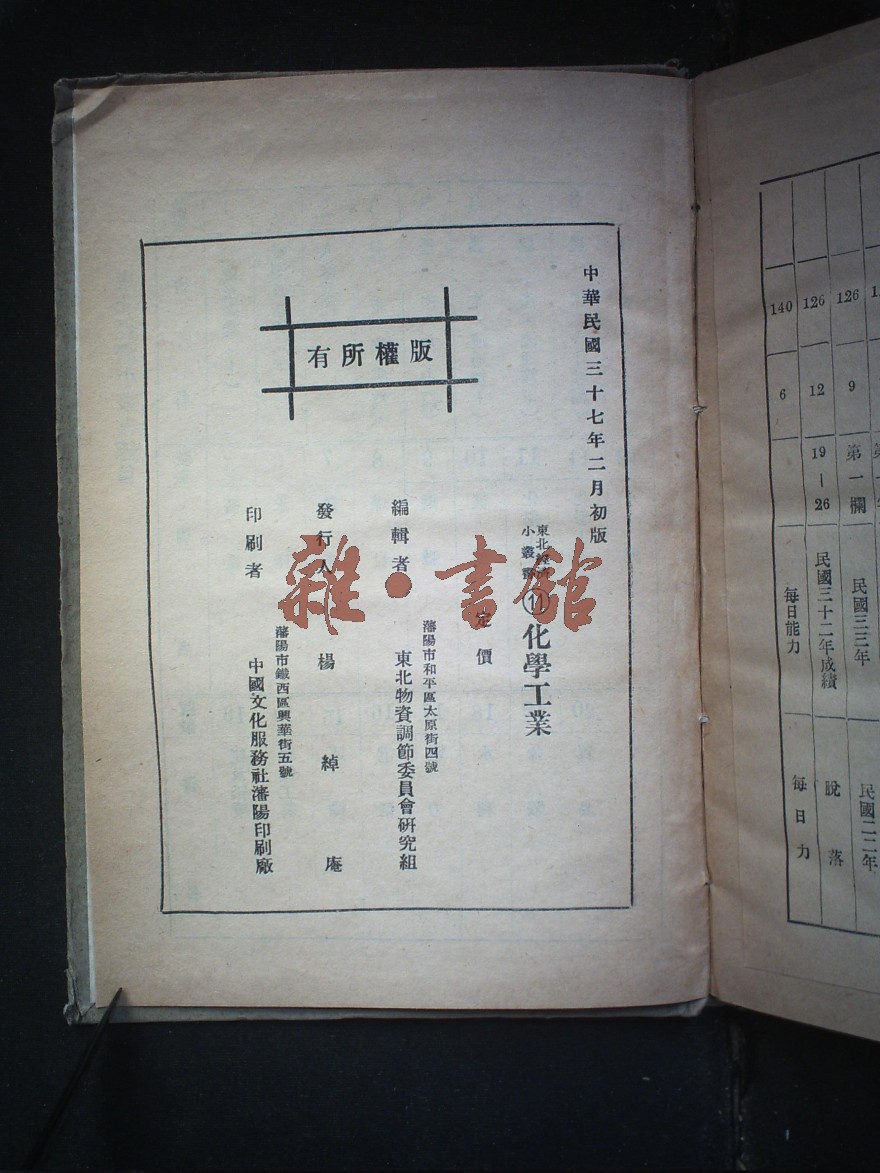 中華民國三十七年二月初版
東北經濟
小叢書
⑪化學工業
定價
瀋陽市和平區太原街四號
編輯者 東北物資調節委員會研究組
發行人 楊綽庵
瀋陽市鐵西區興華街五號
印刷者 中國文化服務社瀋陽印刷廠
版權所有
雜·書館
126 9 第一欄 民國三三年 民國二二年
126 12 19—26 民國三十二年成績 脫落
140 6 每日能力 每日力